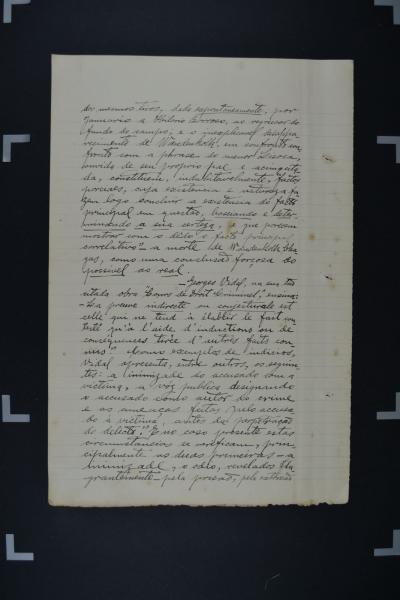 dos mesmos tiros, dada espontaneamente, por
Januario a Obilono Barroso, ao regressar do
fundo do campo, e o inexplicavel desappa-
recimento de Wanderkolk, em confronto
fronto com a phrase do menor
ouvida de seu proprio pai e acima
da, constituem, indubitavelmente, factos
, cuja existencia e natureza fa-
zem logo concluir a existencia do facto
principal em questão, buscando e deter-
minando a sua certeza, e que parecem
mostrar com o dedo o facto principal
correlativo" a morte de Wanderkolk Cha-
gas, como uma conclusão forçosa do
possivel ao real.
Georges Vidal, na sua
citada obra "Cours de Droit Criminel", ensina:
"La preuve indirecte ou conjecturale est
celle qui ne tend à établir le fait con-
testé qu'à l'aide d'inductions ou de
consequences tirée d'autres faits con-
nus" Como exemplos de indicios,
Vidal apresenta, entre outros, os seguin-
tes: a inimizade do accusado com a
victima, a vóz publica designando
o accusado como autor do crime
e as ameaças feitas pelo accusa-
do á victima, antes da perpetração
do delicto." E no caso presente estas
circumstancias se verificam, prin-
cipalmente as duas primeiras - a
inimizade, o odio, revelados fla-
grantemente - pela pressão, pela